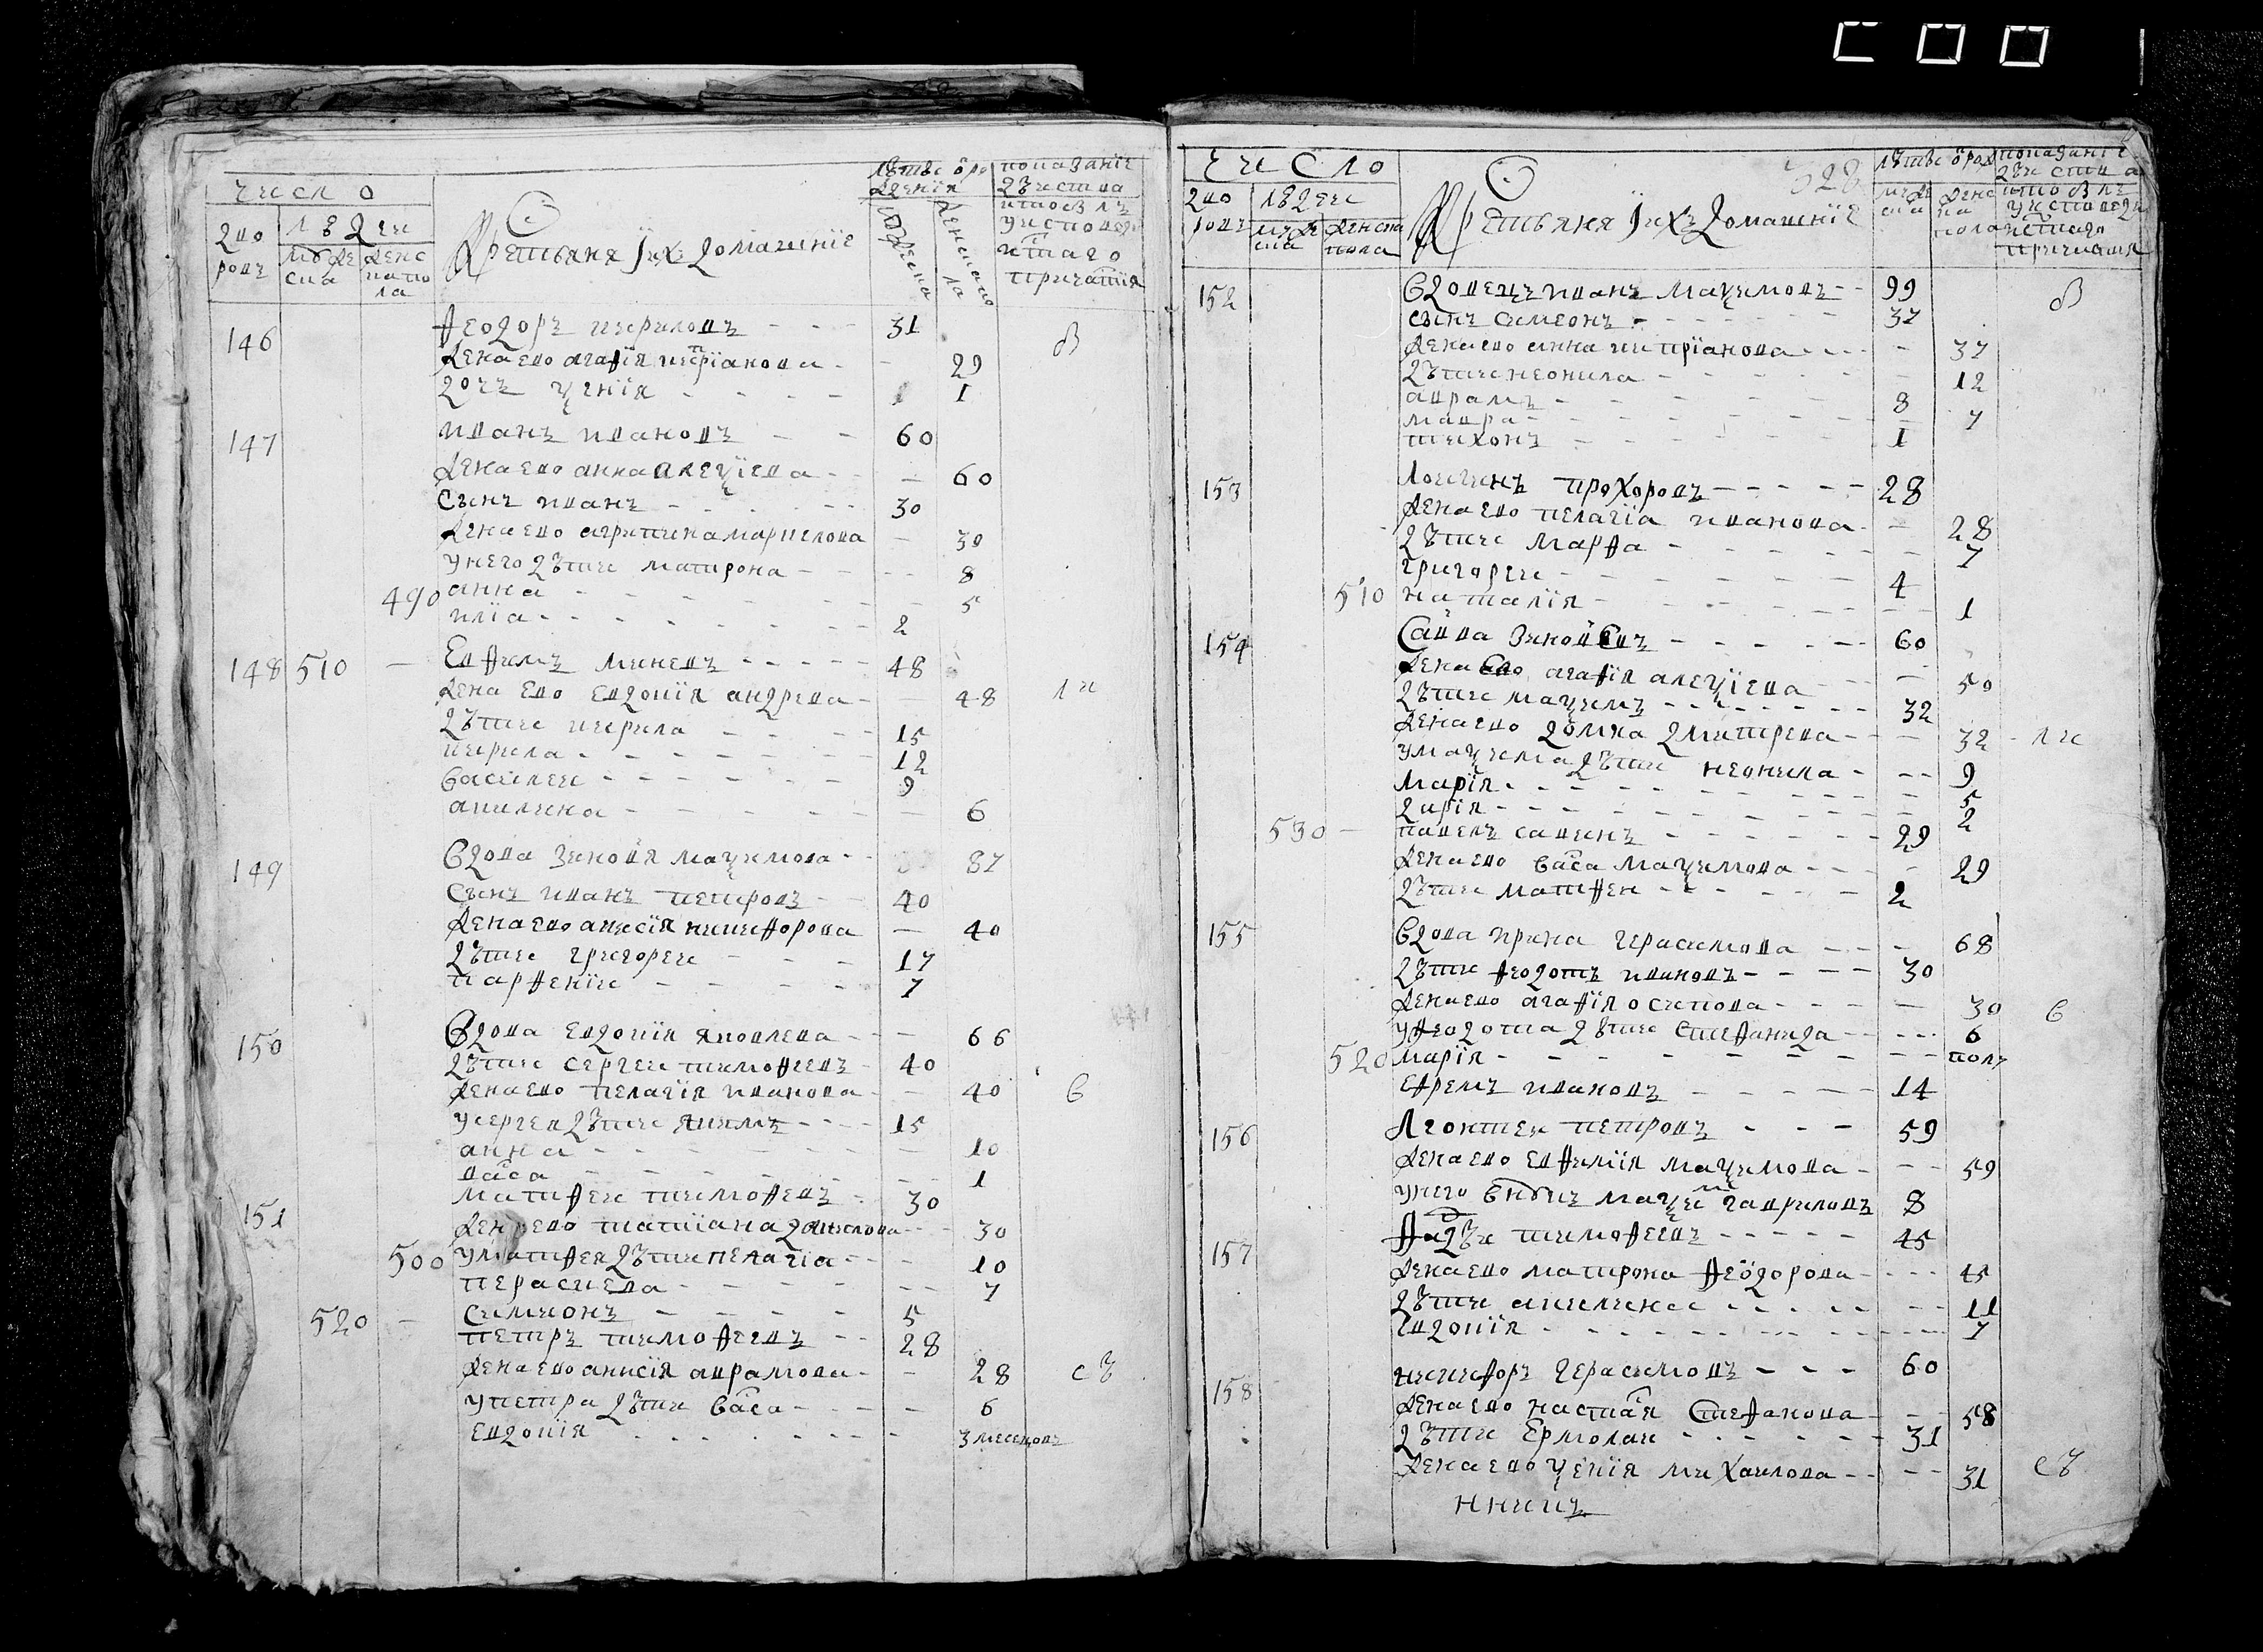 число
дворовъ
людеи
мужеска
женска пола
Крестьяня і ихъ домашніе
лѣтъ ѿ рожденія
мужеска
женска пола
показаніе дѣиства кто былъ у исповеди и стаго причастія
146 Ѳеодоръ кириловъ - - - 31 в
жена ево агаѳія киприанова - 29
дочь ѯенія - - - 1
147 иванъ ивановъ - - 60
жена ево анна алеѯіева - - 60
сынъ иванъ - - - 30
жена ево агрипина маркелова - 30
у него дѣти матрона - - - 8
490 анна - - - 5
иліа - - - 2
148 510 - Евѳимъ миневъ - - - 48
жена ево евдокія андрева - 48 ли
дѣти кирила - - - 15
кирила - - - 12
василеи - - - 9
акилина - - - 6
149 вдова зиновія маѯимова - - 87
сынъ иванъ петровъ - - 40
жена ево анисія никиѳорова - 40
дѣти григореи - - - 17
парѳеніи - - - 7
150 вдова евдокія яковлева - - 66
дѣти сергеи тимоѳеевъ - 40
жена ево пелагія иванова - - 40 в
у сергея дѣти якимъ - - - 15
анна - - - 10
васа - - - 1
151 матѳеи тимоѳеевъ - 30
жена ево татіана даниелова - - 30
500 у матѳея дѣти пелагіа - - 10
пераскева - - - 7
520 - симионъ - - - 5
петръ тимоѳеевъ - - 28
жена ево анисія аврамова - - 28 съ
у петра дѣти васа - - - 6
евдокія - - - 3 месецовъ
число
528
дворовъ
людеи
мужеска
женска пола
Крестьяня і ихъ домашніе
лѣтъ ѿ рожд
мужеска
женска пола
показаніе дѣиства кто былъ у исповеди и стаго причастия
152 вдовецъ иванъ маѯимовъ - - 99 в
сынъ симеонъ - - - 37
жена ево анна киприанова - - - 37
дѣти неонила - - - 12
аврамъ - - - 8
мавра - - - 7
тихонъ - - - 1
153 Логинъ прохоровъ - - - 28
жена ево пелагіа иванова - 28
дѣти марѳа - - - 7
григореи - - - 4
510 наталія - - - 1
154 Савва зиновевъ - - - 60
жена ево агаѳія алеѯіева - - - 59
дѣти маѯимъ - - - 32
жена ево домна дмитрева - - - 32 - ли
у маѯима дѣти неонила - - - 9
марія - - - 5
дарія - - - 2
530 - павелъ савинъ - - - 29
жена ево васа маѯимова - - - 29
дѣти матѳеи - - - 2
155 вдова ирина герасимова - - - 68
дѣти ѳеодотъ ивановъ - - - 30
жена ево агаѳія осипова - - - 30 в
у ѳеодота дѣти стеѳанида - - - 6
520 марія - - - полъ
ефремъ ивановъ - - - 14
156 Леонтеи петровъ - - - 59
жена ево евѳимія маѯимова - - - 59
у него внукъ маѯимъ гавриловъ 8
157 Ѳадѣи тимоѳеевъ - - - 45
жена ево матрона ѳеодорова - - - 45
дѣти акилина - - - 11
евдокія - - - 7
158 никиѳоръ герасимовъ - - - 60
жена ево настасія стеѳанова - - - 58
дѣти ермолаи - - - 31
жена ево ѯенія михаилова - - - 31 съ
у нихъ